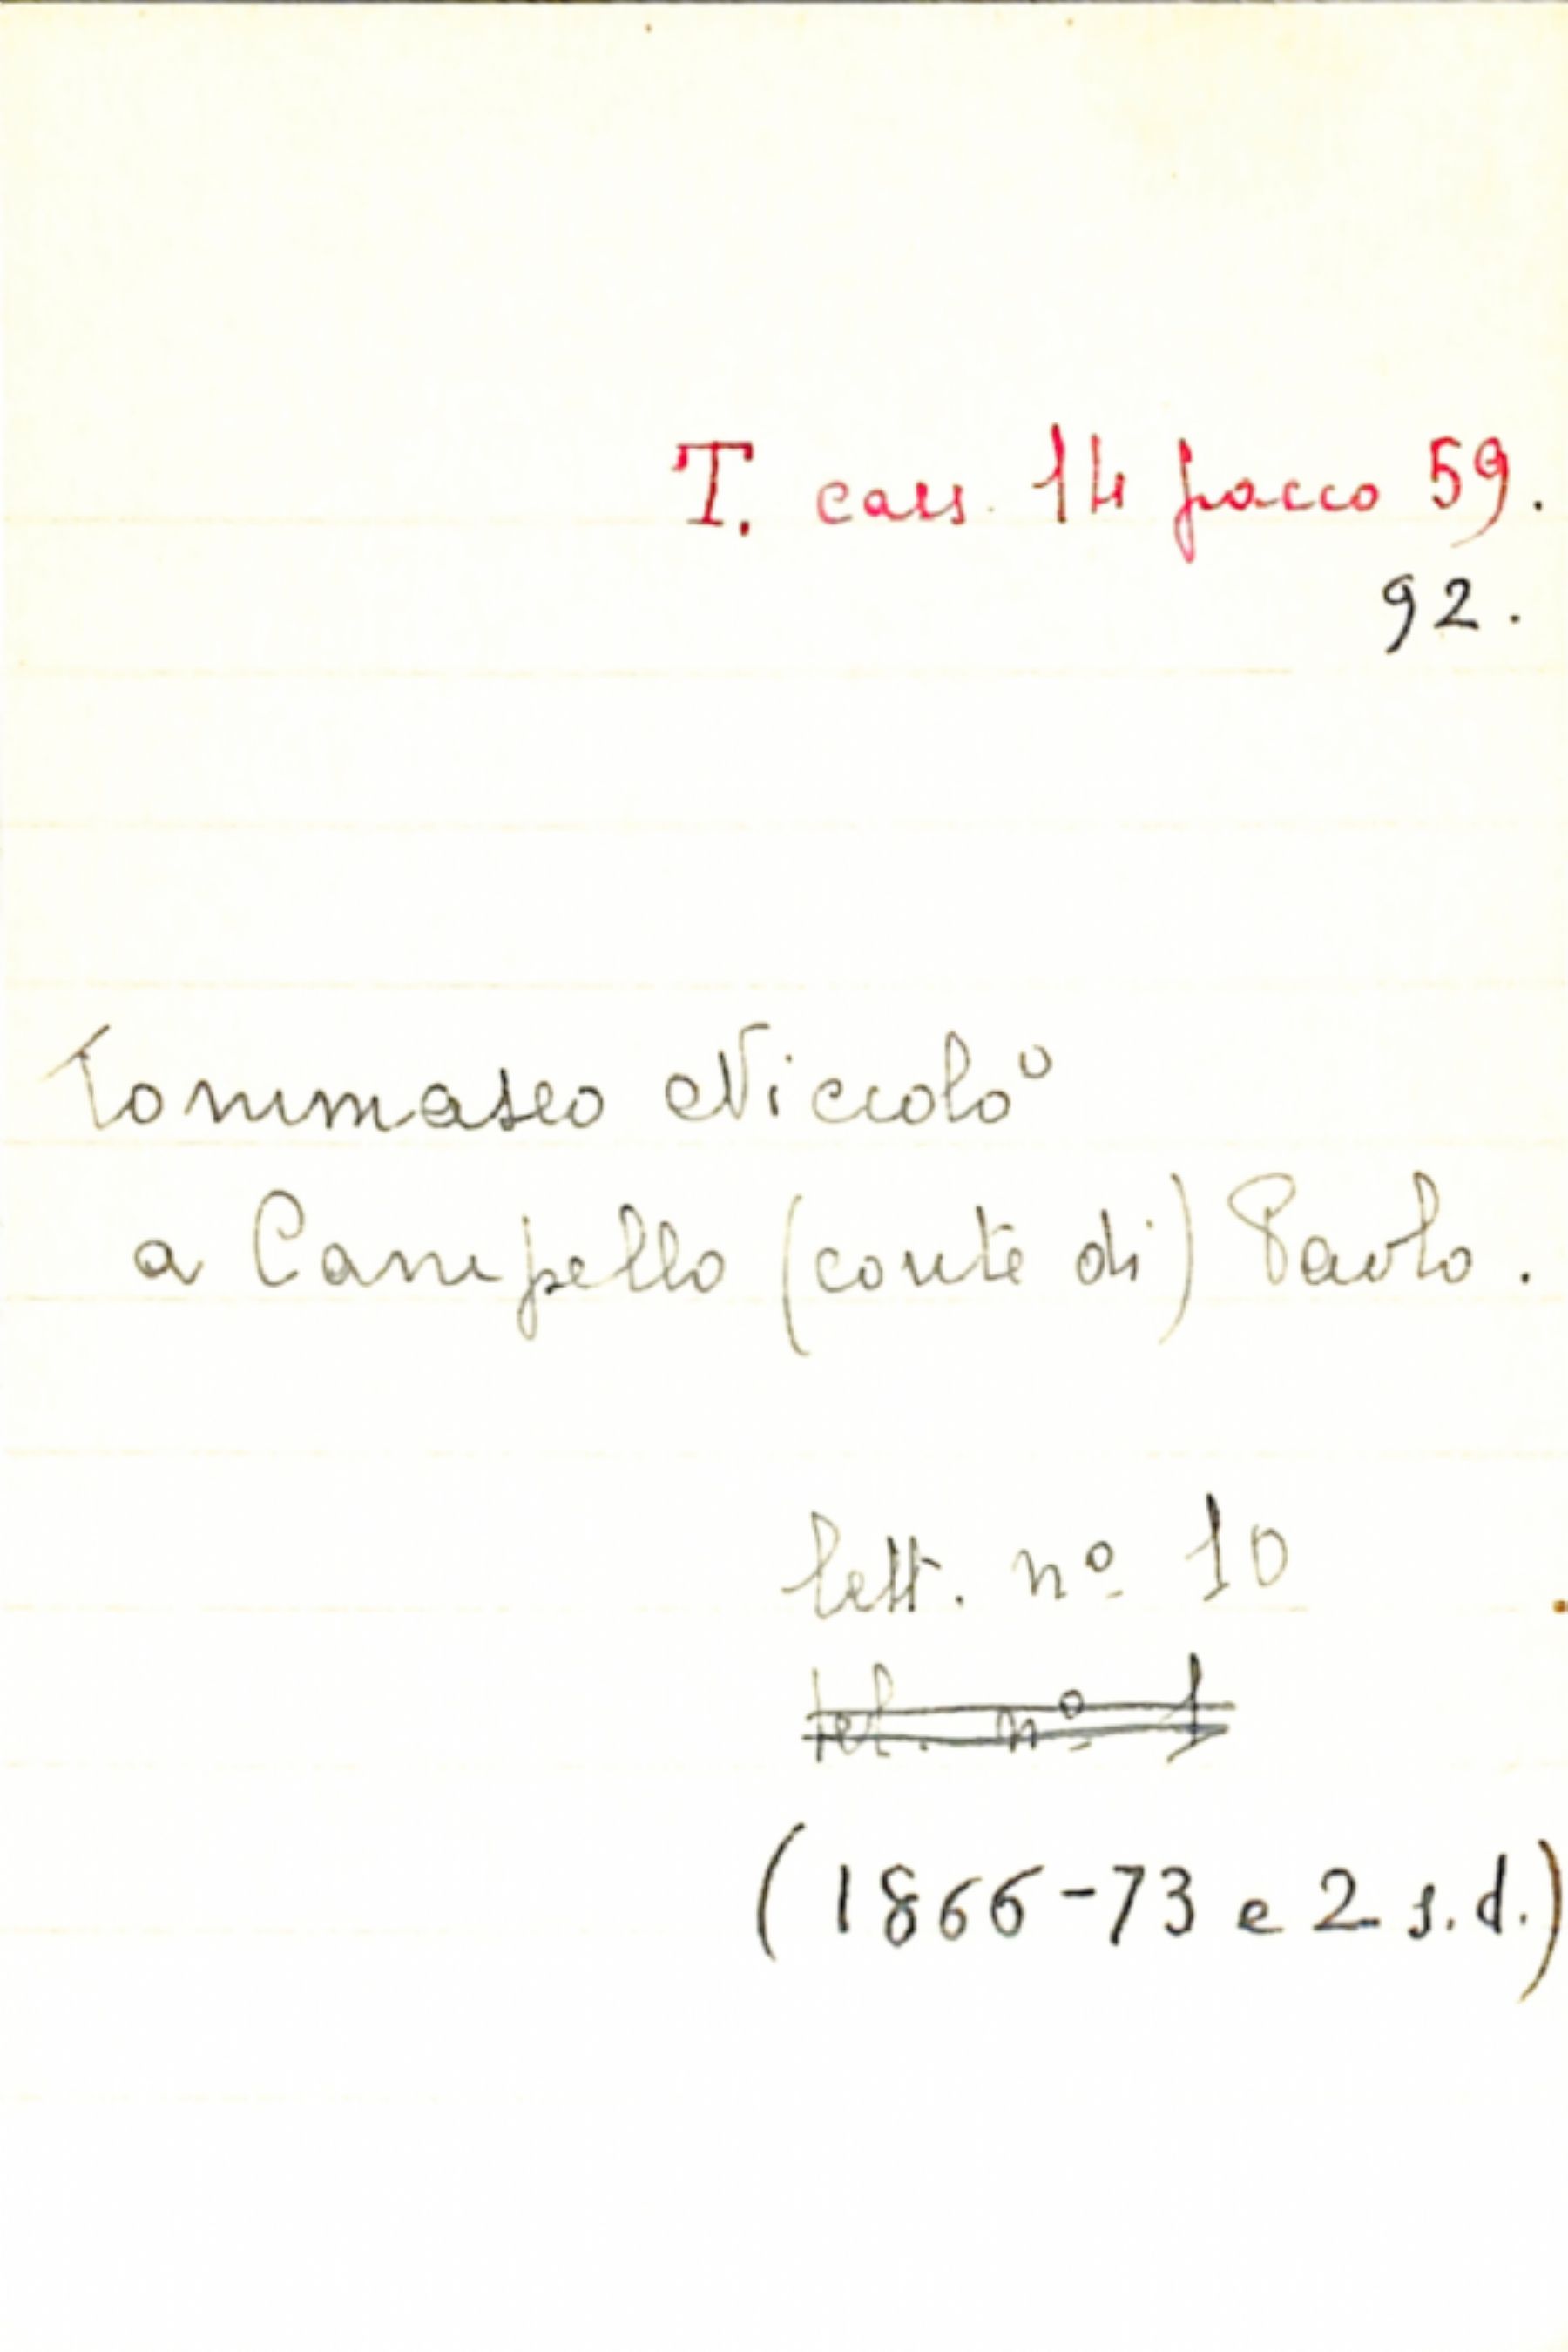 T. cass. 14 pacco 59.
92.
Tommaseo Niccolò
a Campello (conte di) Paolo.
lett. nº 10
tel. nº 1
(1866-73 e 2 s.d.)